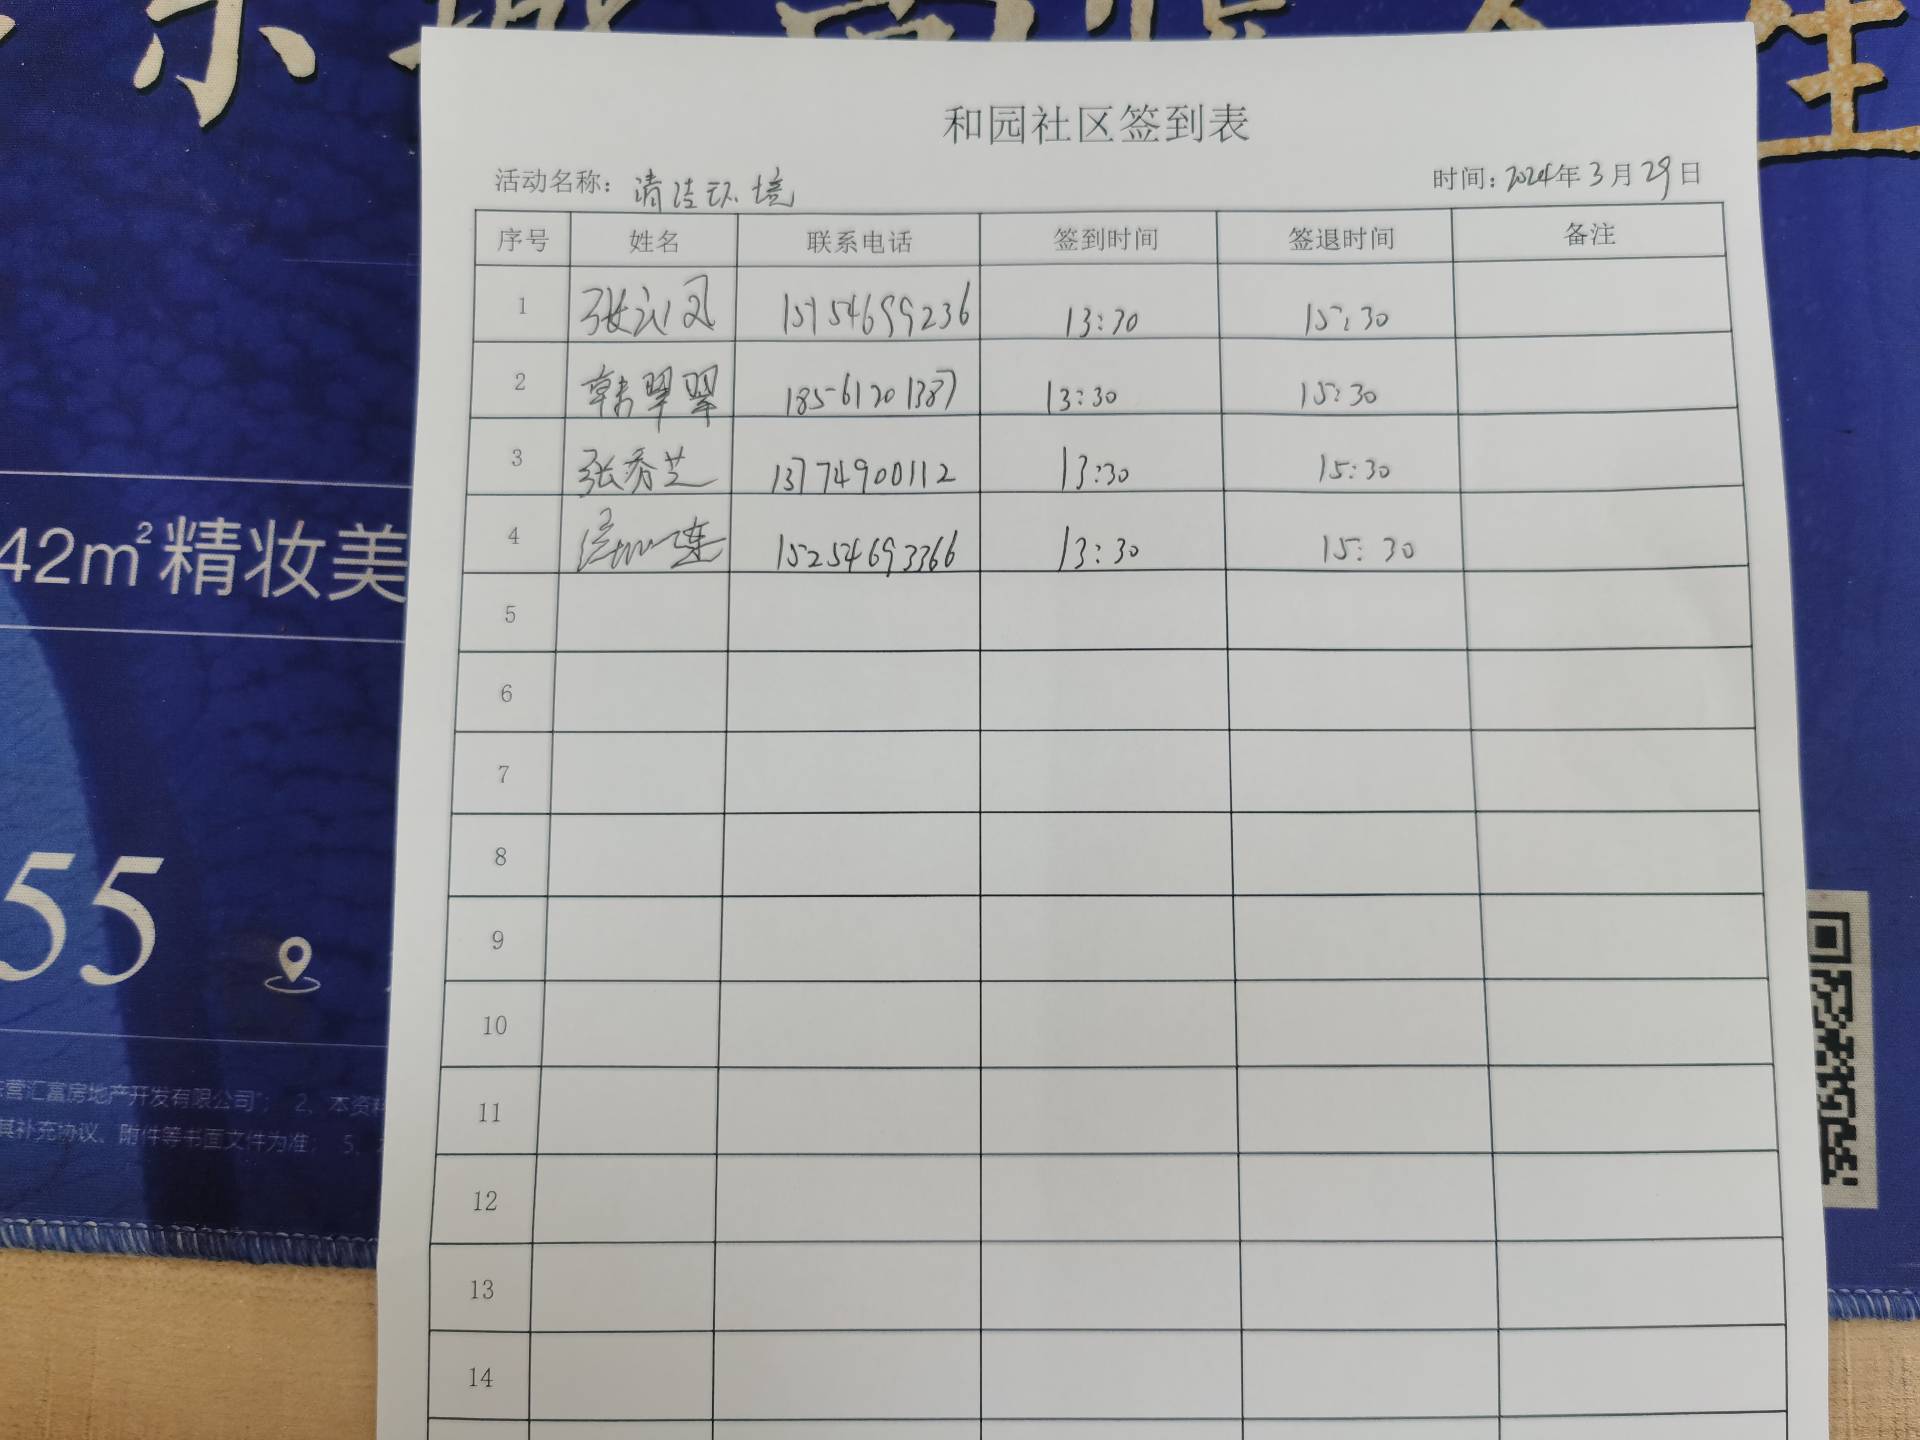 和园社区签到表
活动名称：清洁环境 时间：2024年3月29日
序号 姓名 联系电话 签到时间 签退时间 备注
1 张 凤 15154699236 13:30 15:30
2 韩翠翠 18561201387 13:30 15:30
3 张秀芝 13774900112 13:30 15:30
4 15254693366 13:30 15:30
5
6
7
8
9
10
11
12
13
14
42m²精妆美
55
营汇富房地产开发有限公司”； 2、本资料
其补充协议、附件等书面文件为准； 5、